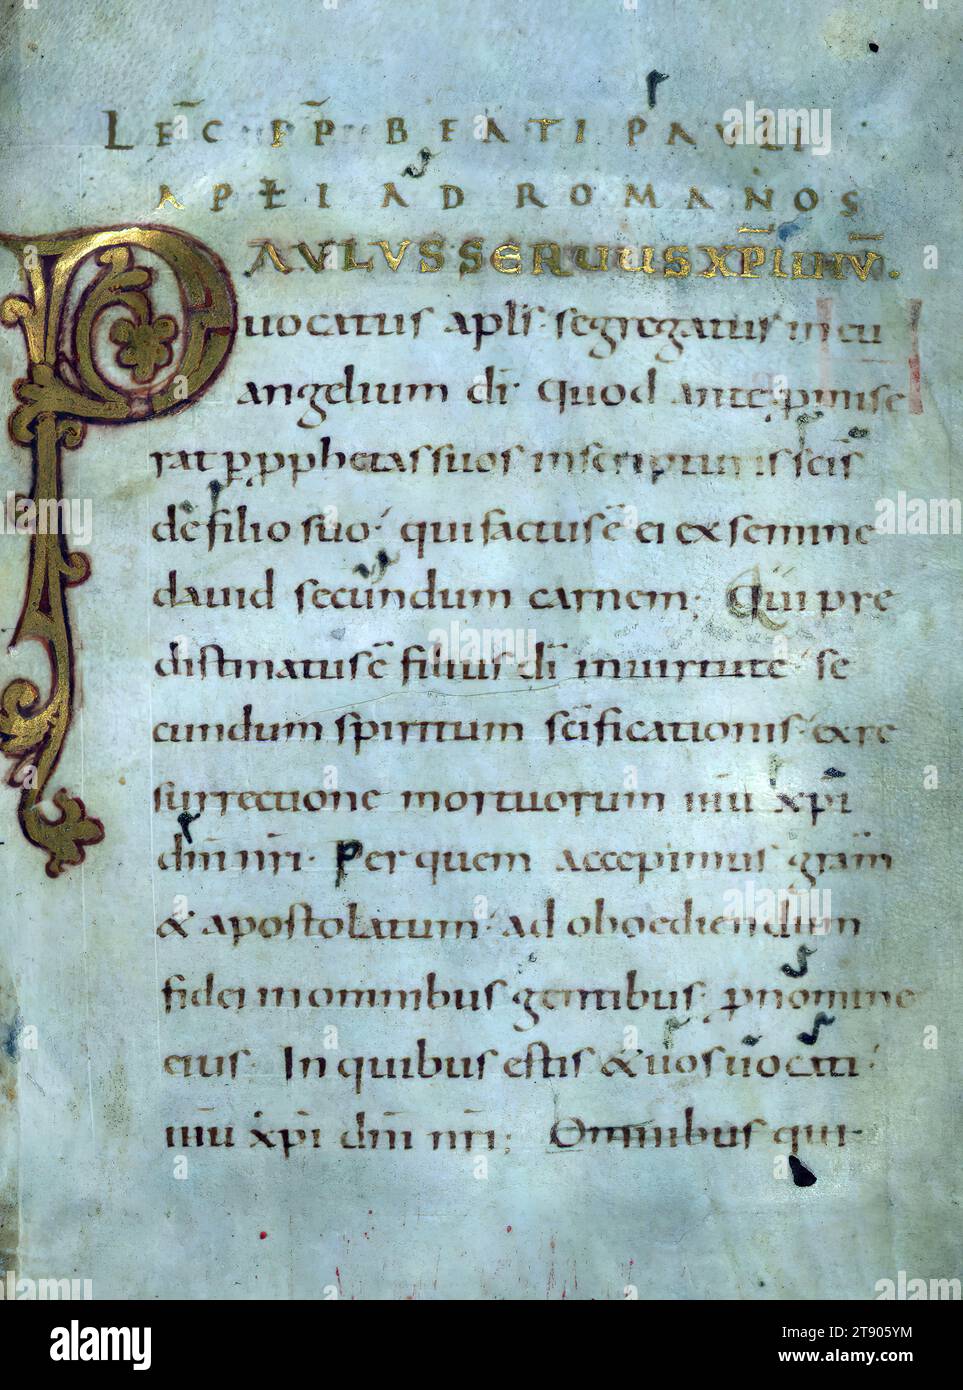 LEC̄ EP̄ BEATI PAULI
APŁI AD ROMANOS
PAULUS SERUUS XP̄I IHŪ.
uocatus apłs· segregatus in eu
angelium dī· quod ante p̄mise
rat ꝑ ꝓphetas suos in scripturis sc̄is
de filio suo· qui factus ē ei ex semine
dauid secundum carnem; Qui pre
distinatus ē filius dī in uirtute· se
cundum spiritum sc̄ificationis· ex re
surrectione mortuorum ihū xp̄i
dn̄i nr̄i· Per quem accepimus grām
& apostolatum· ad oboediendum
fidei in omnibus gentibus; ꝓ nomine
eius· In quibus estis & uos uocati·
ihū xp̄i dn̄i nr̄i; Omnibus qui·
alamy
alamy
Image ID: 2T905YM
www.alamy.com